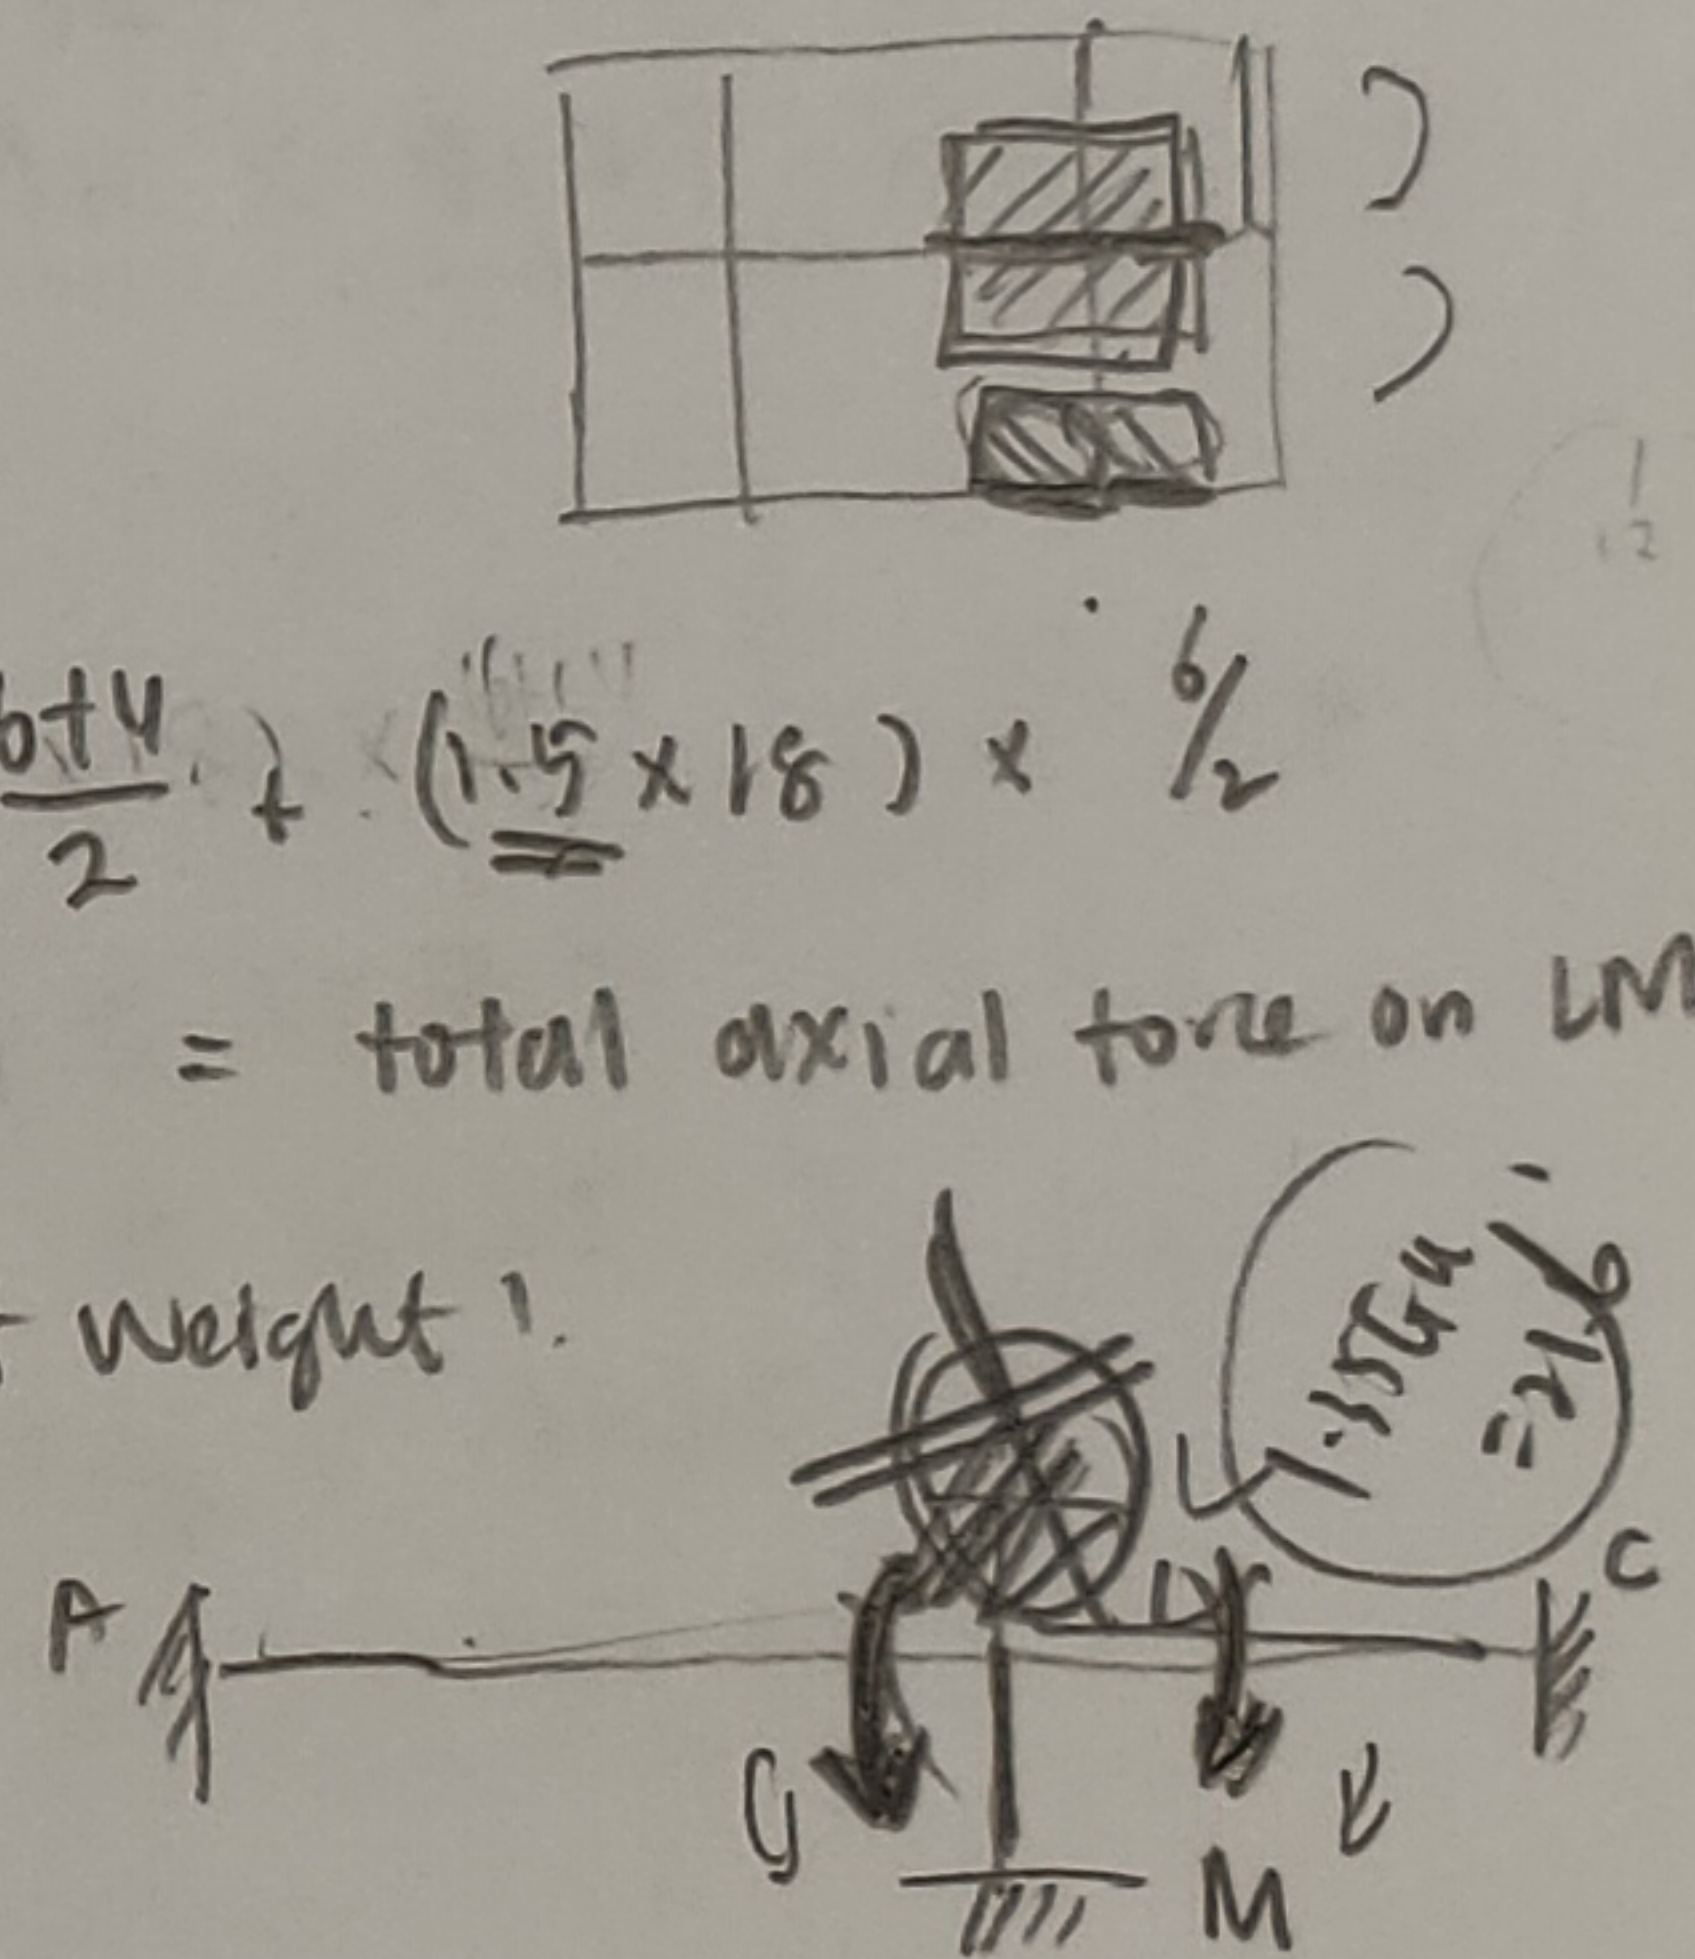 6+4
2
+ (1.5 × 18) × 6/2
= total axial force on LM
weight!
1.35Gk
= 21.6
A
C
M